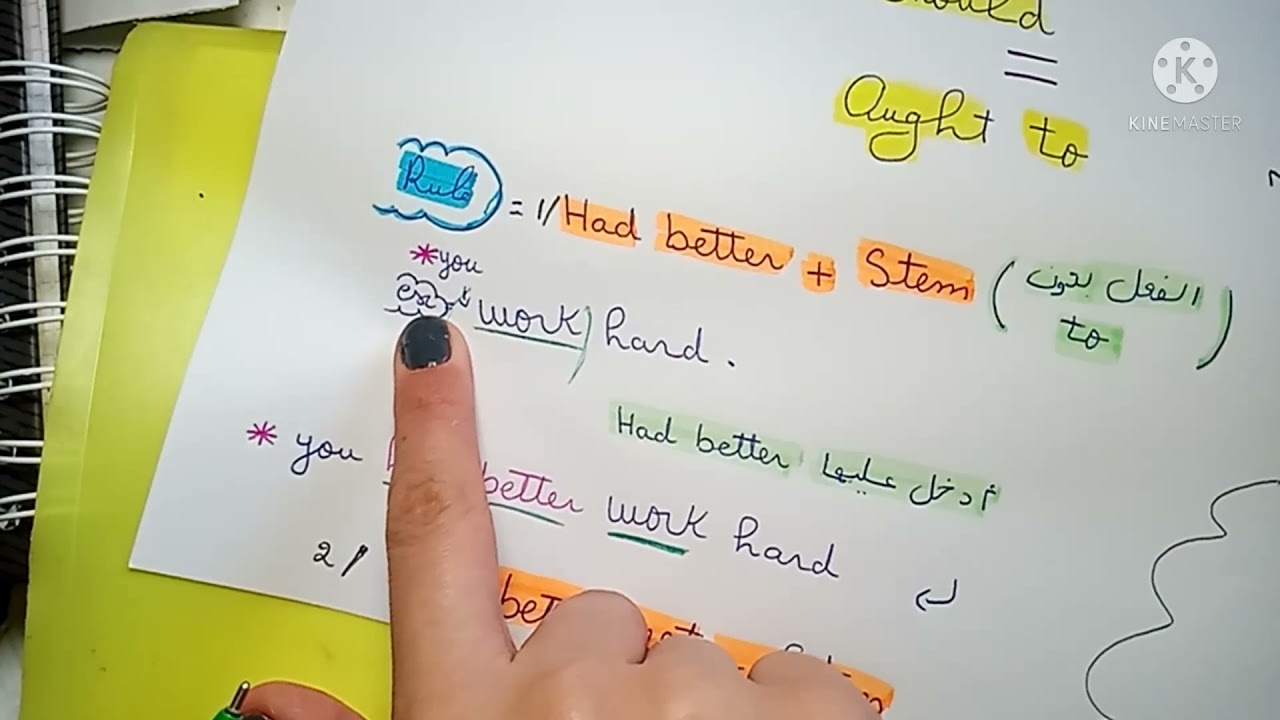 should
=
Aught to
KINEMASTER
Rule = 1/ Had better + Stem (الفعل بدون to)
* you
ex: work hard.
Had better أدخل عليها
* you better work hard
2/ not